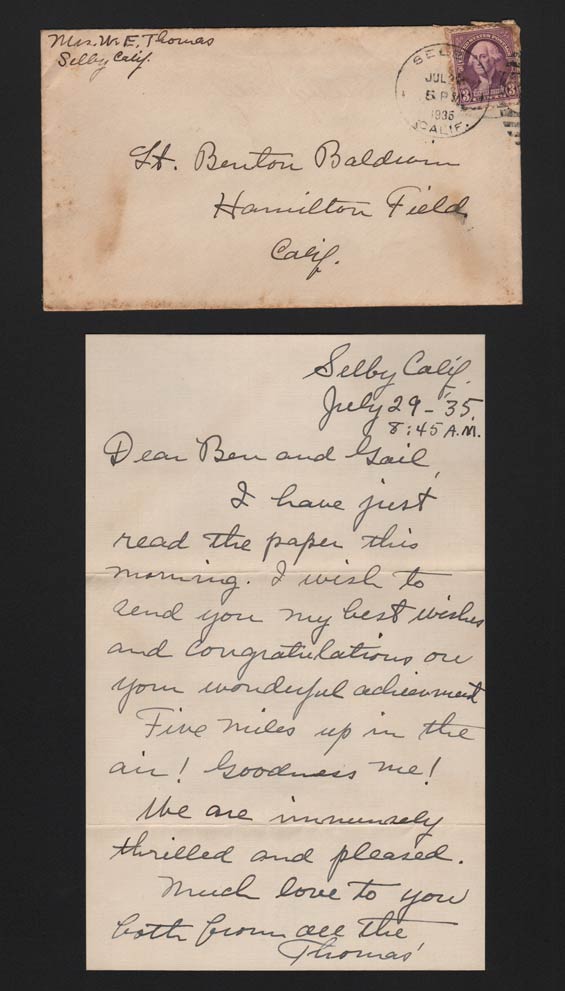 Mrs. W. E. Thomas
Selby Calif.
SELBY
JUL 29
5 PM
1935
CALIF.
UNITED STATES POSTAGE
3 3
Lt. Benton Baldwin
Hamilton Field
Calif.
Selby Calif.
July 29 - '35.
8:45 A.M.
Dear Ben and Gail,
I have just
read the paper this
morning. I wish to
send you my best wishes
and congratulations on
your wonderful achievment
Five miles up in the
air! Goodness me!
We are immensely
thrilled and pleased.
Much love to you
both from all the
Thomas'